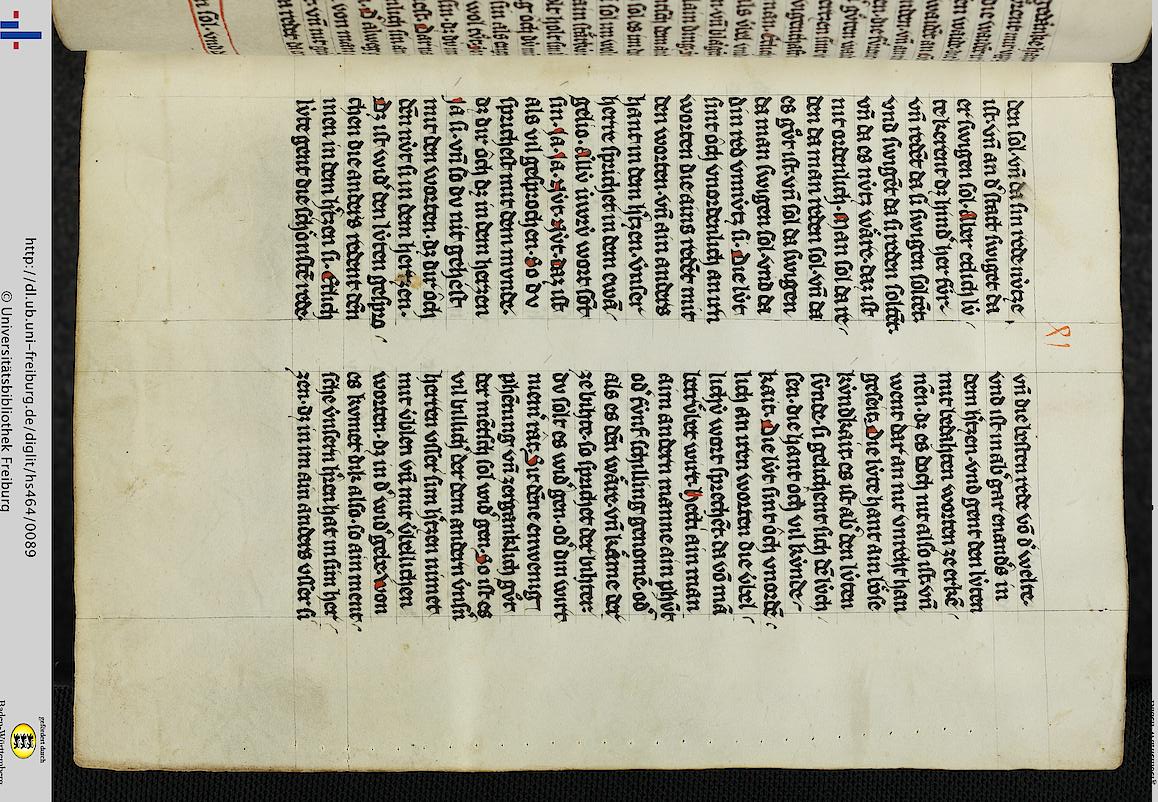 81
den sol. vn̄ da sin rede nv́cze
ist. vn̄ an d' statt swiget da
er swigen sol. Aber etlich lv́
te kerent dz hind' her fúr.
vn̄ redet da si swigen soltēt.
vnd swiget da si reden soltēt.
vn̄ da es nv́tz wâre. daz ist
nit ordenlich. Man sol da re
den da man reden sol. vn̄ da
es gůt ist. vn̄ sol da swigen
da man swigen sol. vnd da
din red vnnv́tz si. Die lv́t
sint och vnordenlich an irn
worten die ains redēt mit
den worten. vn̄ ain anders
hant in dem hˀtzen. Vnser
herre sprichet in dem ewā
gelio. Allú iuwrú wort sōt
sin. Ja. Ja. Nút. Nút. daz ist
als vil gesprochen. So dv
sprichest mit dem mvnde.
dz dir och dz in dem herzen
Ja si. vn̄ so dv nit gehest
mit den worten. dz dir och
dēn nút si in dem hertzen.
Dz ist wid' den lúten gespro
chen die anders redent dēn
inen in dem hˀtzen si. Etlich
lúte gent die schônstē rede.
vn̄ die besten rede vō d' welte.
vnd ist in ab' gar enands in
dem hˀtzen. vnd gent den lúten
mit bedahten worten ze erkē
nen. dz es doch nit also ist. vn̄
went dar an nit vnreht han
geseit. Die lúte hant ain bôse
kúndkait. es ist ab' den lúten
súnde. si gelichent sich dē túch
sen. die hant och vil kúnde
kait. Die lút sint och vnordē
lich an iren worten die úbel
lichú wort sprechēt. da vō mā
betrúbet wirt. Hett ain man
aim andern manne ain phūt
od' fúnf schilling genomē. od'
als es dēn wâre. vn̄ kâme der
ze bihte. so sprichet der bihter.
dv solt es wid' gen. od' din wirt
niem̄ rat. Sit dēne ein wenig
phēning vn̄ zerganklich gůt
der mēsch sol wid' gen. So ist es
vil billich der dem andern vnsˀn
herren vsser sim hˀtzen nimet
mit úblen vn̄ mit itellichen
worten. dz in d' wid' gebe. Won
es kvmet dik also. so ain ment
sche vnsern hˀren hat in sim her
zen. dz in im ain anders vsser si
http://dl.ub.uni-freiburg.de/diglit/hs464/0089
© Universitätsbibliothek Freiburg
gefördert durch